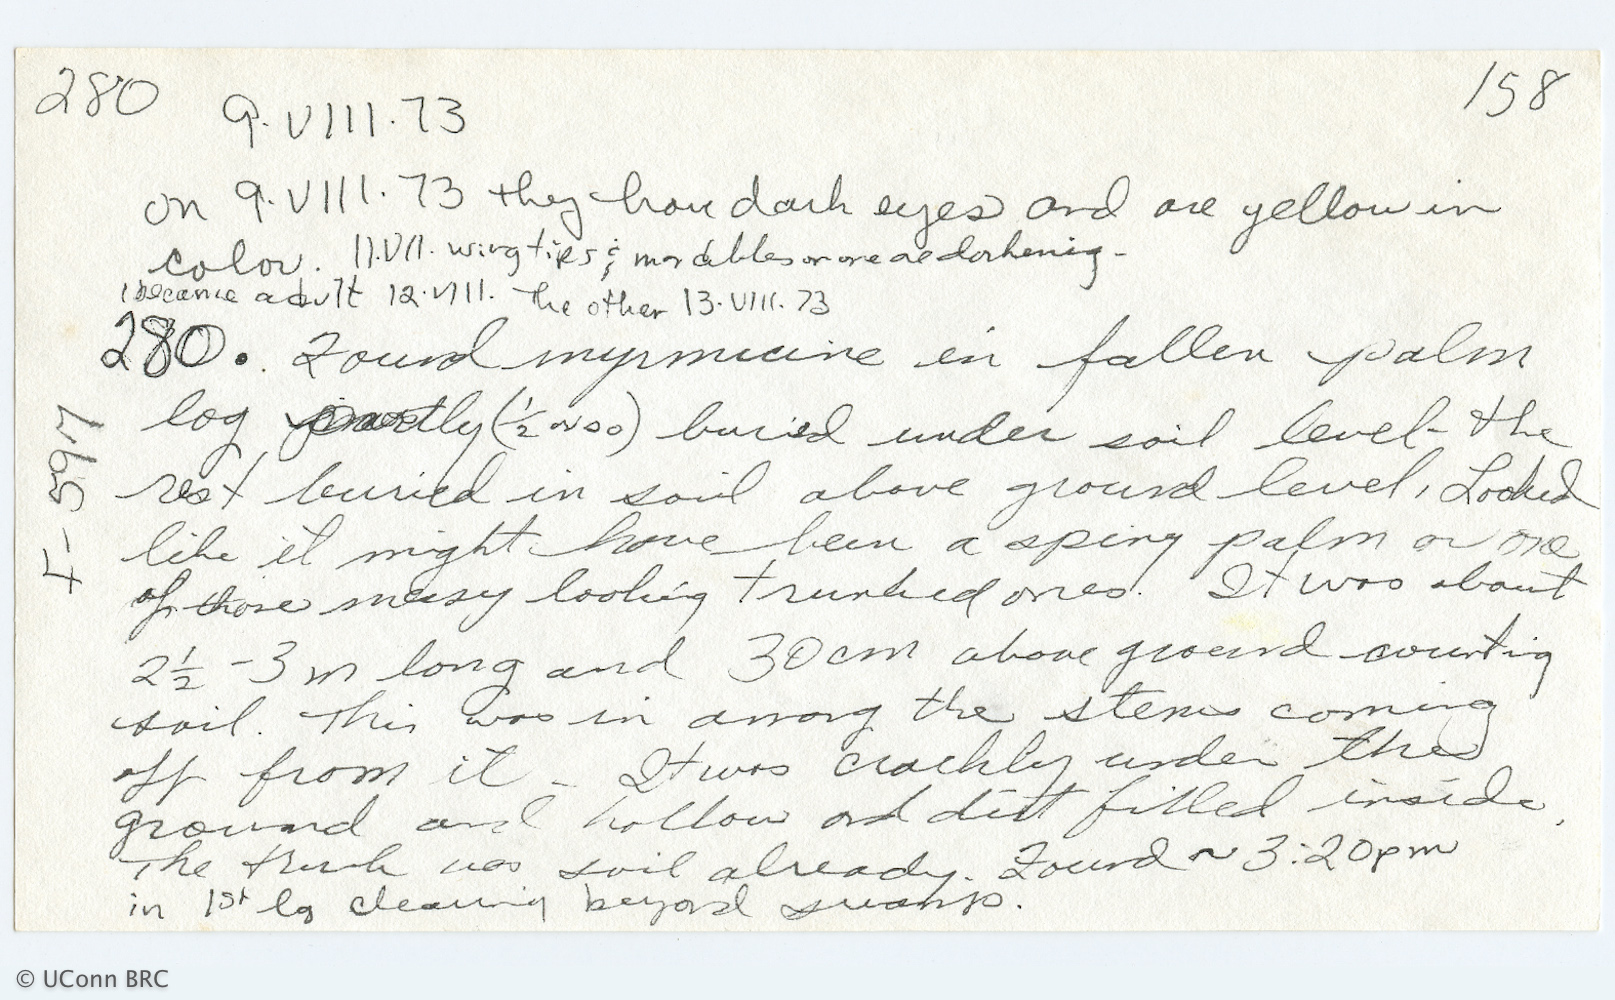 280
158
9.VIII.73
on 9.VIII.73 they have dark eyes and are yellow in
color. 11.VII. wing tips & mandibles or are darkening -
1 became adult 12.VIII. The other 13.VIII.73
280. Found myrmicine in fallen palm
log partly (½ or so) buried under soil level - the
rest buried in soil above ground level, Looked
like it might have been a spiny palm or one
of those messy looking trunked ones. It was about
2½ - 3 m long and 30 cm above ground counting
soil. This was in among the stems coming
off from it - It was crackly under the
ground and hollow and dirt filled inside.
The trunk was soil already. Found ~ 3:20pm
in 1st lg clearing beyond swamp.
F-597
© UConn BRC